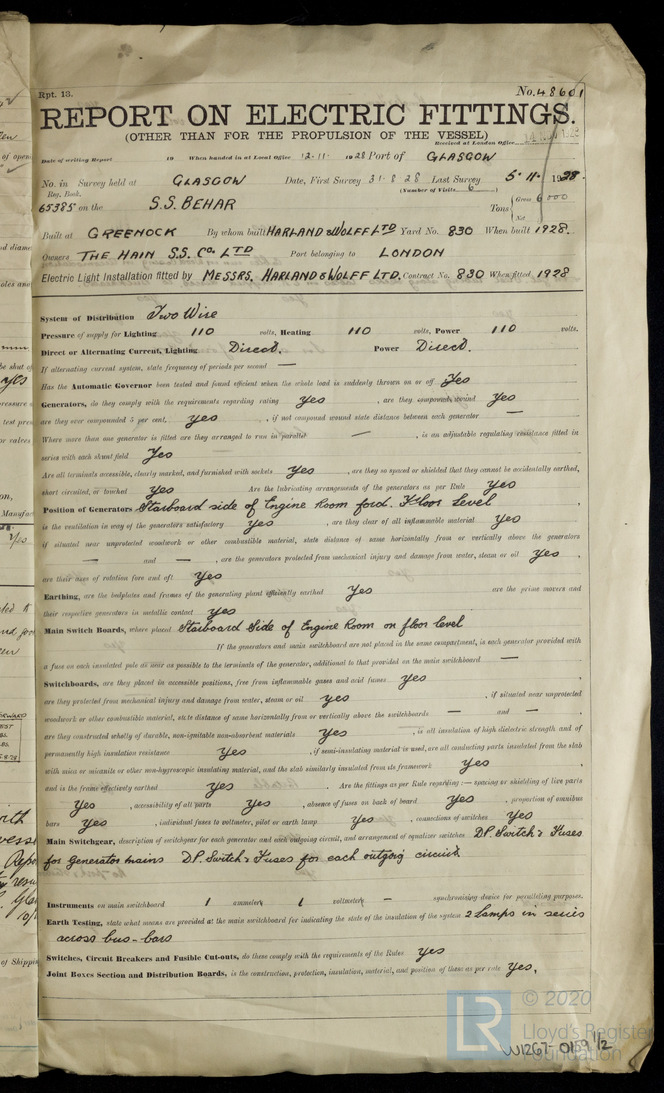 Rpt. 13.
No. 48601
REPORT ON ELECTRIC FITTINGS.
(OTHER THAN FOR THE PROPULSION OF THE VESSEL)
Received at London Office
Date of writing Report 19 When handed in at Local Office 12-11- 1928 Port of GLASGOW
No. in Survey held at GLASGOW Date, First Survey 31-8-28 Last Survey 5-11- 1928.
Reg. Book. (Number of Visits 6)
65385 on the S.S. BEHAR Tons { Gross 6000
Net
Built at GREENOCK By whom built HARLAND & WOLFF LTD Yard No. 830 When built 1928.
Owners THE HAIN S.S. Co. LTD Port belonging to LONDON
Electric Light Installation fitted by MESSRS. HARLAND & WOLFF LTD. Contract No. 830 When fitted 1928
System of Distribution Two Wire
Pressure of supply for Lighting 110 volts, Heating 110 volts, Power 110 volts.
Direct or Alternating Current, Lighting Direct. Power Direct.
If alternating current system, state frequency of periods per second —
Has the Automatic Governor been tested and found efficient when the whole load is suddenly thrown on or off Yes
Generators, do they comply with the requirements regarding rating yes , are they compound wound yes
are they over compounded 5 per cent. yes , if not compound wound state distance between each generator —
Where more than one generator is fitted are they arranged to run in parallel — , is an adjustable regulating resistance fitted in
series with each shunt field yes
Are all terminals accessible, clearly marked, and furnished with sockets yes , are they so spaced or shielded that they cannot be accidentally earthed,
short circuited, or touched yes Are the lubricating arrangements of the generators as per Rule yes
Position of Generators Starboard side of Engine Room ford. Floor Level
is the ventilation in way of the generators satisfactory yes , are they clear of all inflammable material yes
if situated near unprotected woodwork or other combustible material, state distance of same horizontally from or vertically above the generators
— and — , are the generators protected from mechanical injury and damage from water, steam or oil yes .
are their axes of rotation fore and aft yes
Earthing, are the bedplates and frames of the generating plant efficiently earthed yes are the prime movers and
their respective generators in metallic contact yes
Main Switch Boards, where placed Starboard Side of Engine Room on floor level
If the generators and main switchboard are not placed in the same compartment, is each generator provided with
a fuse on each insulated pole as near as possible to the terminals of the generator, additional to that provided on the main switchboard —
Switchboards, are they placed in accessible positions, free from inflammable gases and acid fumes yes
are they protected from mechanical injury and damage from water, steam or oil yes , if situated near unprotected
woodwork or other combustible material, state distance of same horizontally from or vertically above the switchboards — and —
are they constructed wholly of durable, non-ignitable non-absorbent materials yes , is all insulation of high dielectric strength and of
permanently high insulation resistance yes , if semi-insulating material is used, are all conducting parts insulated from the slab
with mica or micanite or other non-hygroscopic insulating material, and the slab similarly insulated from its framework yes .
and is the frame effectively earthed yes . Are the fittings as per Rule regarding:— spacing or shielding of live parts
yes , accessibility of all parts yes , absence of fuses on back of board yes , proportion of omnibus
bars yes , individual fuses to voltmeter, pilot or earth lamp yes , connections of switches yes
Main Switchgear, description of switchgear for each generator and each outgoing circuit, and arrangement of equalizer switches D.P. Switch & Fuses
for generator mains D.P. Switch & Fuses for each outgoing circuit
Instruments on main switchboard 1 ammeters 1 voltmeters — synchronising device for paralleling purposes.
Earth Testing, state what means are provided at the main switchboard for indicating the state of the insulation of the system 2 Lamps in series
across bus-bars
Switches, Circuit Breakers and Fusible Cut-outs, do these comply with the requirements of the Rules yes
Joint Boxes Section and Distribution Boards, is the construction, protection, insulation, material, and position of these as per rule yes,
LR
© 2020
Lloyd's Register
Foundation
W1267-0159 1/2